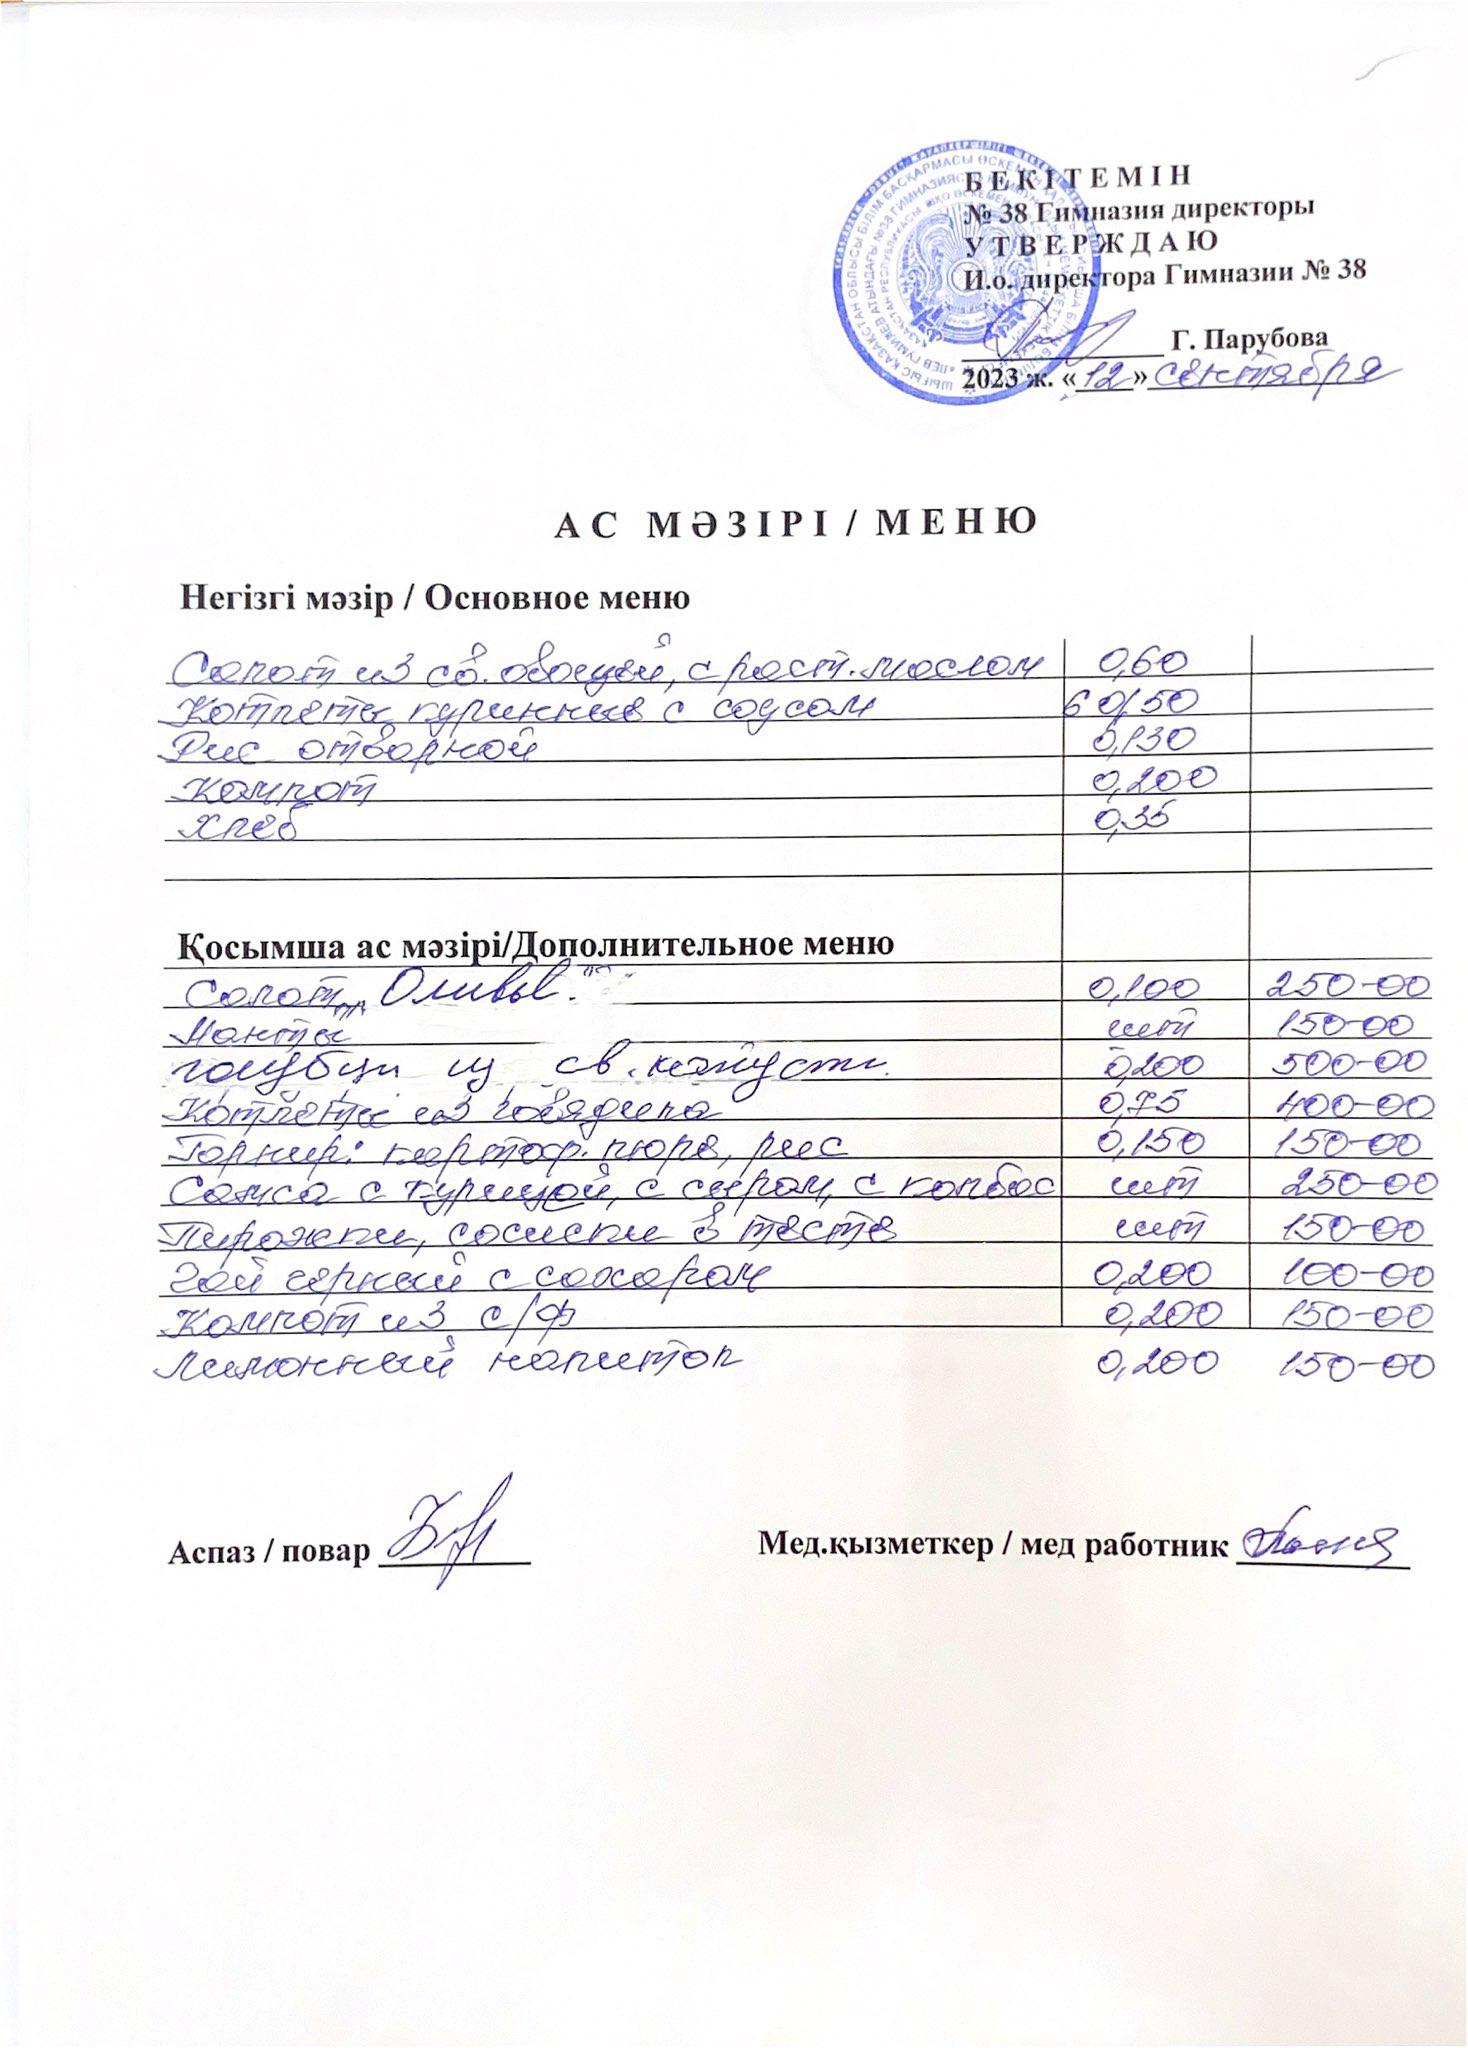 БЕКІТЕМІН
№ 38 Гимназия директоры
УТВЕРЖДАЮ
И.о. директора Гимназии № 38
Г. Парубова
2023 ж. «12» сентября
АС МӘЗІРІ / МЕНЮ
Негізгі мәзір / Основное меню
Салат из св. овощей, с раст. маслом 0,60
Котлеты куринные с соусом 60/50
Рис отварной 0,130
Компот 0,200
Хлеб 0,35
Қосымша ас мәзірі/Дополнительное меню
Салат 0,100 250-00
Манты шт 150-00
голубцы из св. капусты 0,200 500-00
Котлеты из говядины 0,75 400-00
Гарнир: картоф. пюре, рис 0,150 150-00
Самса с курицой, с сыром, с колбас шт 250-00
Пирожки, сосиски в тесте шт 150-00
Чай черный с сахаром 0,200 100-00
Компот из с/ф 0,200 150-00
Лимонный напиток 0,200 150-00
Аспаз / повар
Мед.қызметкер / мед работник